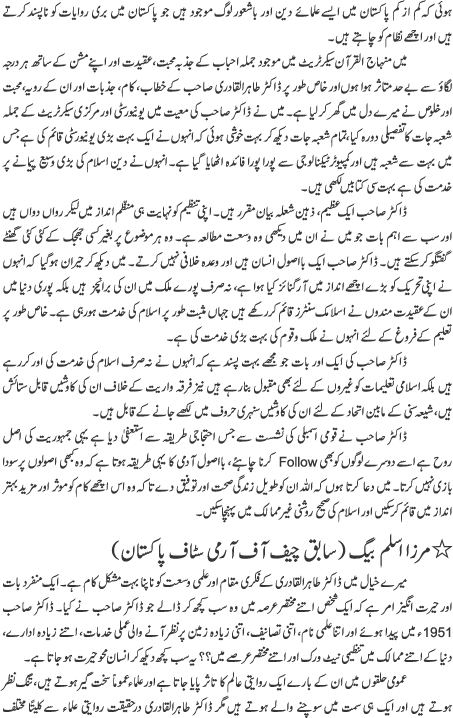 ہوئی کہ کم از کم پاکستان میں ایسے علمائے دین اور باشعور لوگ موجود ہیں جو پاکستان میں بری روایات کو ناپسند کرتے
ہیں اور اچھے نظام کو چاہتے ہیں۔
میں منہاج القرآن سیکرٹریٹ میں موجود جملہ احباب کے جذبہ محبت، عقیدت اور اپنے مشن کے ساتھ ہر درجہ
لگاؤ سے بے حد متاثر ہوا ہوں اور خاص طور پر ڈاکٹر طاہرالقادری صاحب کے خطاب، کام، جذبات اور ان کے رویہ، محبت
اور خلوص نے میرے دل میں گھر کر لیا ہے۔ میں نے ڈاکٹر صاحب کی معیت میں یونیورسٹی اور مرکزی سیکرٹریٹ کے جملہ
شعبہ جات کا تفصیلی دورہ کیا، تمام شعبہ جات دیکھ کر بہت خوشی ہوئی کہ انہوں نے ایک بہت بڑی یونیورسٹی قائم کی ہے جس
میں بہت سے شعبہ ہیں اور کمپیوٹر ٹیکنالوجی سے پورا پورا فائدہ اٹھایا گیا ہے۔ انہوں نے دین اسلام کی بڑی وسیع پیمانے پر
خدمت کی ہے بہت سی کتابیں لکھی ہیں۔
ڈاکٹر صاحب ایک عظیم، ذہین شعلہ بیان مقرر ہیں۔ اپنی تنظیم کو نہایت ہی منظم انداز میں لیکر رواں دواں ہیں
اور سب سے اہم بات جو میں نے ان میں دیکھی وہ وسعت مطالعہ ہے۔ وہ ہر موضوع پر بغیر کسی جھجک کے کئی کئی گھنٹے
گفتگو کر سکتے ہیں۔ ڈاکٹر صاحب ایک بااصول انسان ہیں اور وعدہ خلافی نہیں کرتے۔ میں دیکھ کر حیران ہو گیا کہ انہوں
نے اپنی تحریک کو بڑے اچھے انداز میں آرگنائز کیا ہوا ہے، نہ صرف پورے ملک میں ان کی برانچز ہیں بلکہ پوری دنیا میں
ان کے عقیدت مندوں نے اسلامک سنٹرز قائم کر رکھے ہیں جہاں مثبت طور پر اسلام کی خدمت ہو رہی ہے۔ خاص طور پر
تعلیم کے فروغ کے لئے انہوں نے ملک و قوم کی بہت بڑی خدمت کی ہے۔
ڈاکٹر صاحب کی ایک اور بات جو مجھے بہت پسند ہے کہ انہوں نے نہ صرف اسلام کی خدمت کی اور کر رہے
ہیں بلکہ اسلامی تعلیمات کو غیروں کے لئے بھی مقبول بنا رہے ہیں نیز فرقہ واریت کے خلاف ان کی کاوشیں قابل ستائش
ہیں، شیعہ سنی کے مابین اتحاد کے لئے ان کی کاوشیں سنہری حروف میں لکھے جانے کے قابل ہیں۔
ڈاکٹر صاحب نے قومی اسمبلی کی نشست سے جس احتجاجی طریقہ سے استعفیٰ دیا ہے یہی جمہوریت کی اصل
روح ہے اسے دوسرے لوگوں کو بھی Follow کرنا چاہئے، بااصول آدمی کا یہی طریقہ ہوتا ہے کہ وہ کبھی اصولوں پر سودا
بازی نہیں کرتا۔ میں دعا کرتا ہوں کہ اللہ ان کو طویل زندگی صحت اور توفیق دے تاکہ وہ اس اچھے کام کو موثر اور مزید بہتر
انداز میں قائم کر سکیں اور اسلام کی صحیح روشنی غیر ممالک میں پہنچا سکیں۔
☆ مرزا اسلم بیگ (سابق چیف آف آرمی سٹاف پاکستان)
میرے خیال میں ڈاکٹر طاہرالقادری کے فکری مقام اور علمی وسعت کو ناپنا بہت مشکل کام ہے۔ ایک منفرد بات
اور حیرت انگیز امر ہے کہ ایک شخص اتنے مختصر عرصہ میں وہ سب کچھ کر ڈالے جو ڈاکٹر صاحب نے کیا۔ ڈاکٹر صاحب
1951ء میں پیدا ہوئے اور اتنا علمی نام، اتنی تصانیف، اتنی زیادہ زمین پر نظر آنے والی عملی خدمات، اتنے زیادہ ادارے،
دنیا کے اتنے ممالک میں تنظیمی نیٹ ورک اور اتنے مختصر عرصے میں؟؟؟ یہ سب کچھ دیکھ کر انسان محو حیرت ہو جاتا ہے۔
عمومی حلقوں میں ان کے بارے ایک روایتی عالم کا تاثر پایا جاتا ہے اور علماء عموماً سخت گیر ہوتے ہیں، تنگ نظر
ہوتے ہیں اور ایک ہی سمت میں سوچنے والے ہوتے ہیں مگر ڈاکٹر طاہرالقادری درحقیقت روایتی علماء سے کلیتاً مختلف